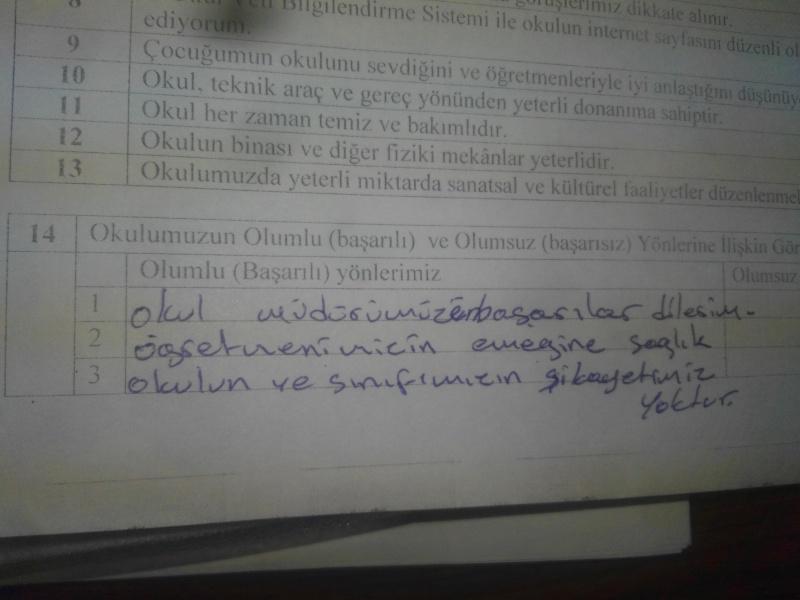 8 Veri Bilgilendirme Sistemi ile okulun internet sayfasını düzenli
görüşlerimiz dikkate alınır.
ediyorum.
9 Çocuğumun okulunu sevdiğini ve öğretmenleriyle iyi anlaştığını
10 Okul, teknik araç ve gereç yönünden yeterli donanıma sahiptir.
11 Okul her zaman temiz ve bakımlıdır.
12 Okulun binası ve diğer fiziki mekânlar yeterlidir.
13 Okulumuzda yeterli miktarda sanatsal ve kültürel faaliyetler
14 Okulumuzun Olumlu (başarılı) ve Olumsuz (başarısız) Yönlerine İlişkin
Olumlu (Başarılı) yönlerimiz Olumsuz
1 okul müdürümüze başarılar dilerim.
2 öğretmenimizin emeğine sağlık
3 okulun ve sınıfımızın şikayetimiz
yoktur.